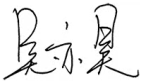 吴亦昊